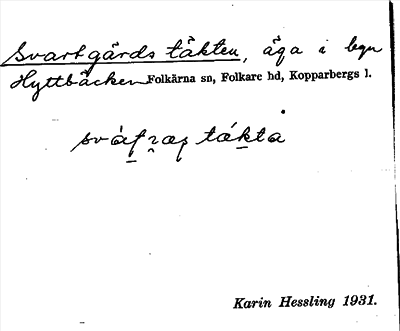 Svartgårds täkten, äga i byn
Hyttbäcken Folkärna sn, Folkare hd, Kopparbergs l.
Karin Hessling 1931.